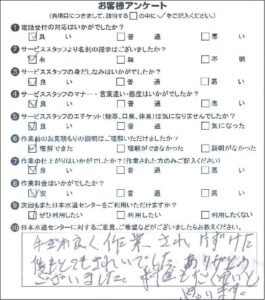 お客様アンケート
(各項目につきまして、該当する□の中に✓をご記入ください。)
❶電話受付の対応はいかがでしたか?
☑良い □普通 □悪い
❷サービススタッフより名刺の提示はございましたか?
☑有 □無 □不明
❸サービススタッフの身だしなみはいかがでしたか?
☑良い □普通 □悪い
❹サービススタッフのマナー・言葉遣い・態度はいかがでしたか?
☑良い □普通 □悪い
❺サービススタッフのエチケット(煙草、口臭、体臭)は気になりませんでしたか?
☑良い □普通 □気になった
❻作業前のお見積もりの説明はご理解いただけましたか?
☑理解できた □理解ができなかった □説明がなかった
❼作業の仕上がりはいかがでしたか?(作業された方のみご記入ください)
☑良い □普通 □悪い
❽作業料金はいかがでしたか?
☑安い □普通 □高い
❾次回もまた日本水道センターをご利用いただけますか?
☑ぜひ利用したい □利用したい □利用したくない
❿日本水道センターに対するご意見、ご希望などがございましたらお教えください。
手ぎわ良く作業され
とてもきれいでした。ありがとう
ございました。
思います。